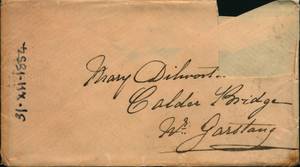 31-XII-1884.
Mary Dilworth
Calder Bridge
Nr Garstang